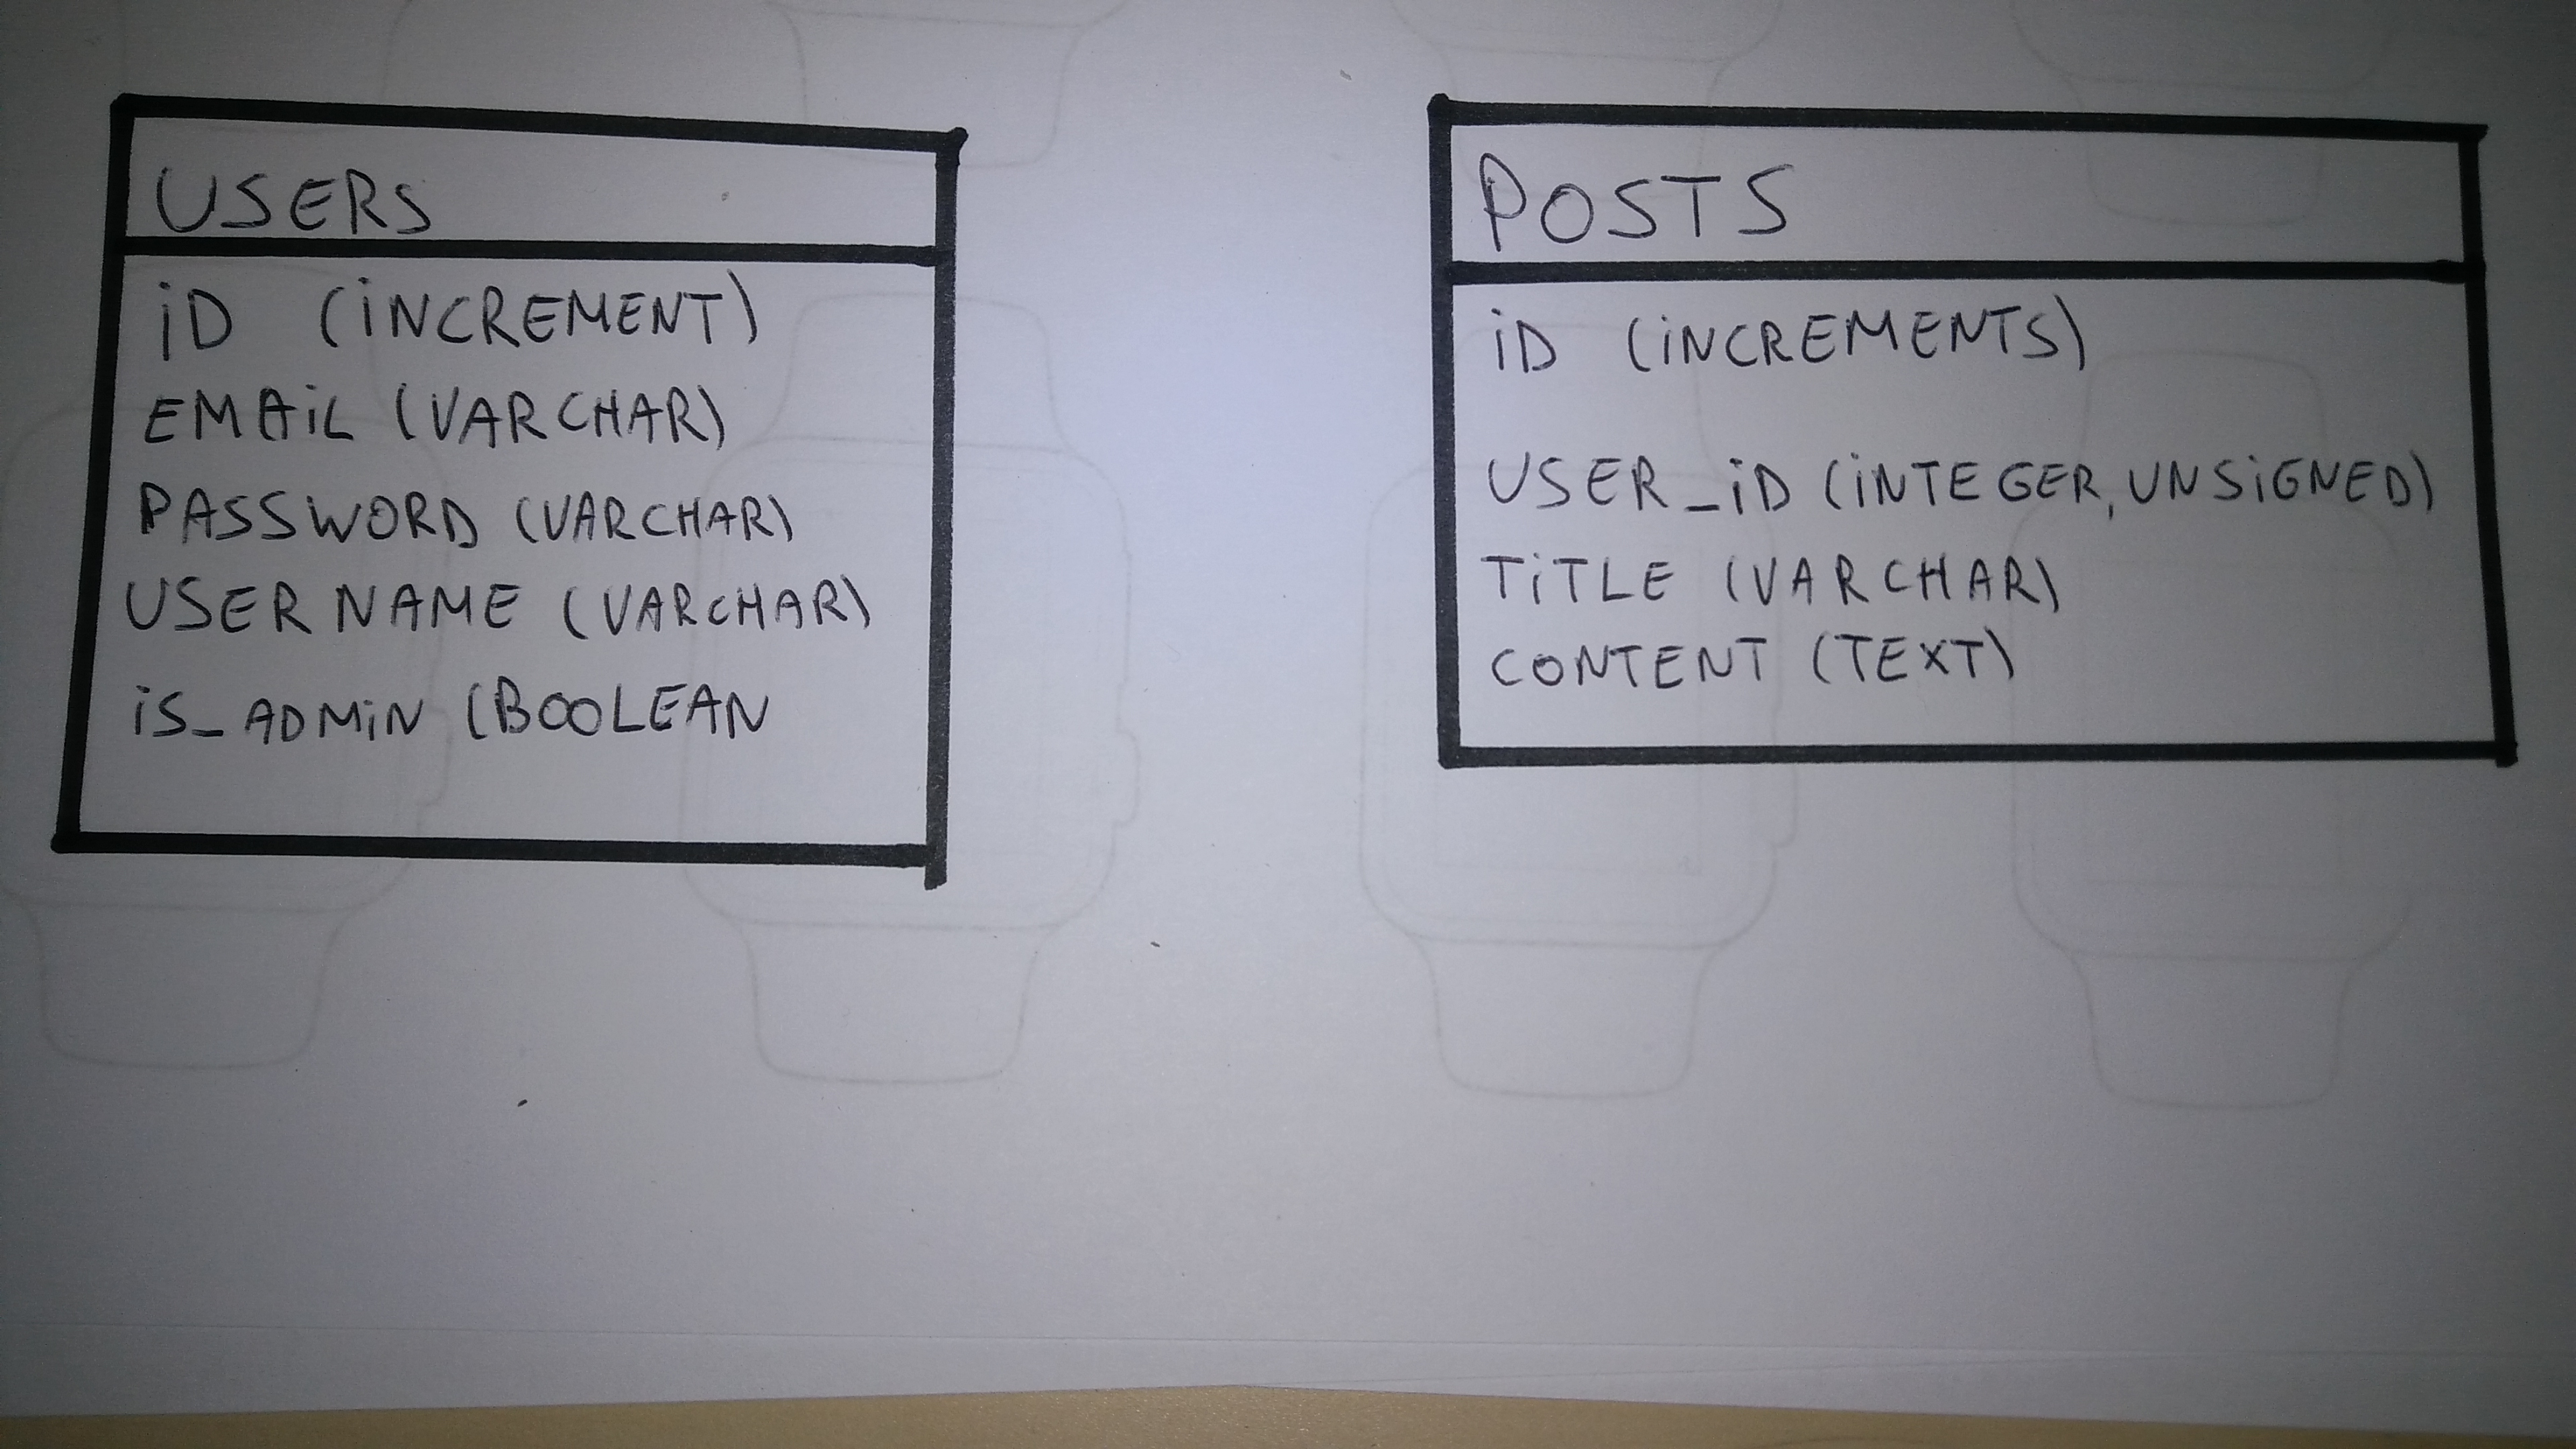 USERS
iD (iNCREMENT)
EMAiL (VARCHAR)
PASSWORD (VARCHAR)
USERNAME (VARCHAR)
iS_ADMiN (BOOLEAN
POSTS
iD (iNCREMENTS)
USER_iD (iNTEGER, UNSiGNED)
TiTLE (VARCHAR)
CONTENT (TEXT)